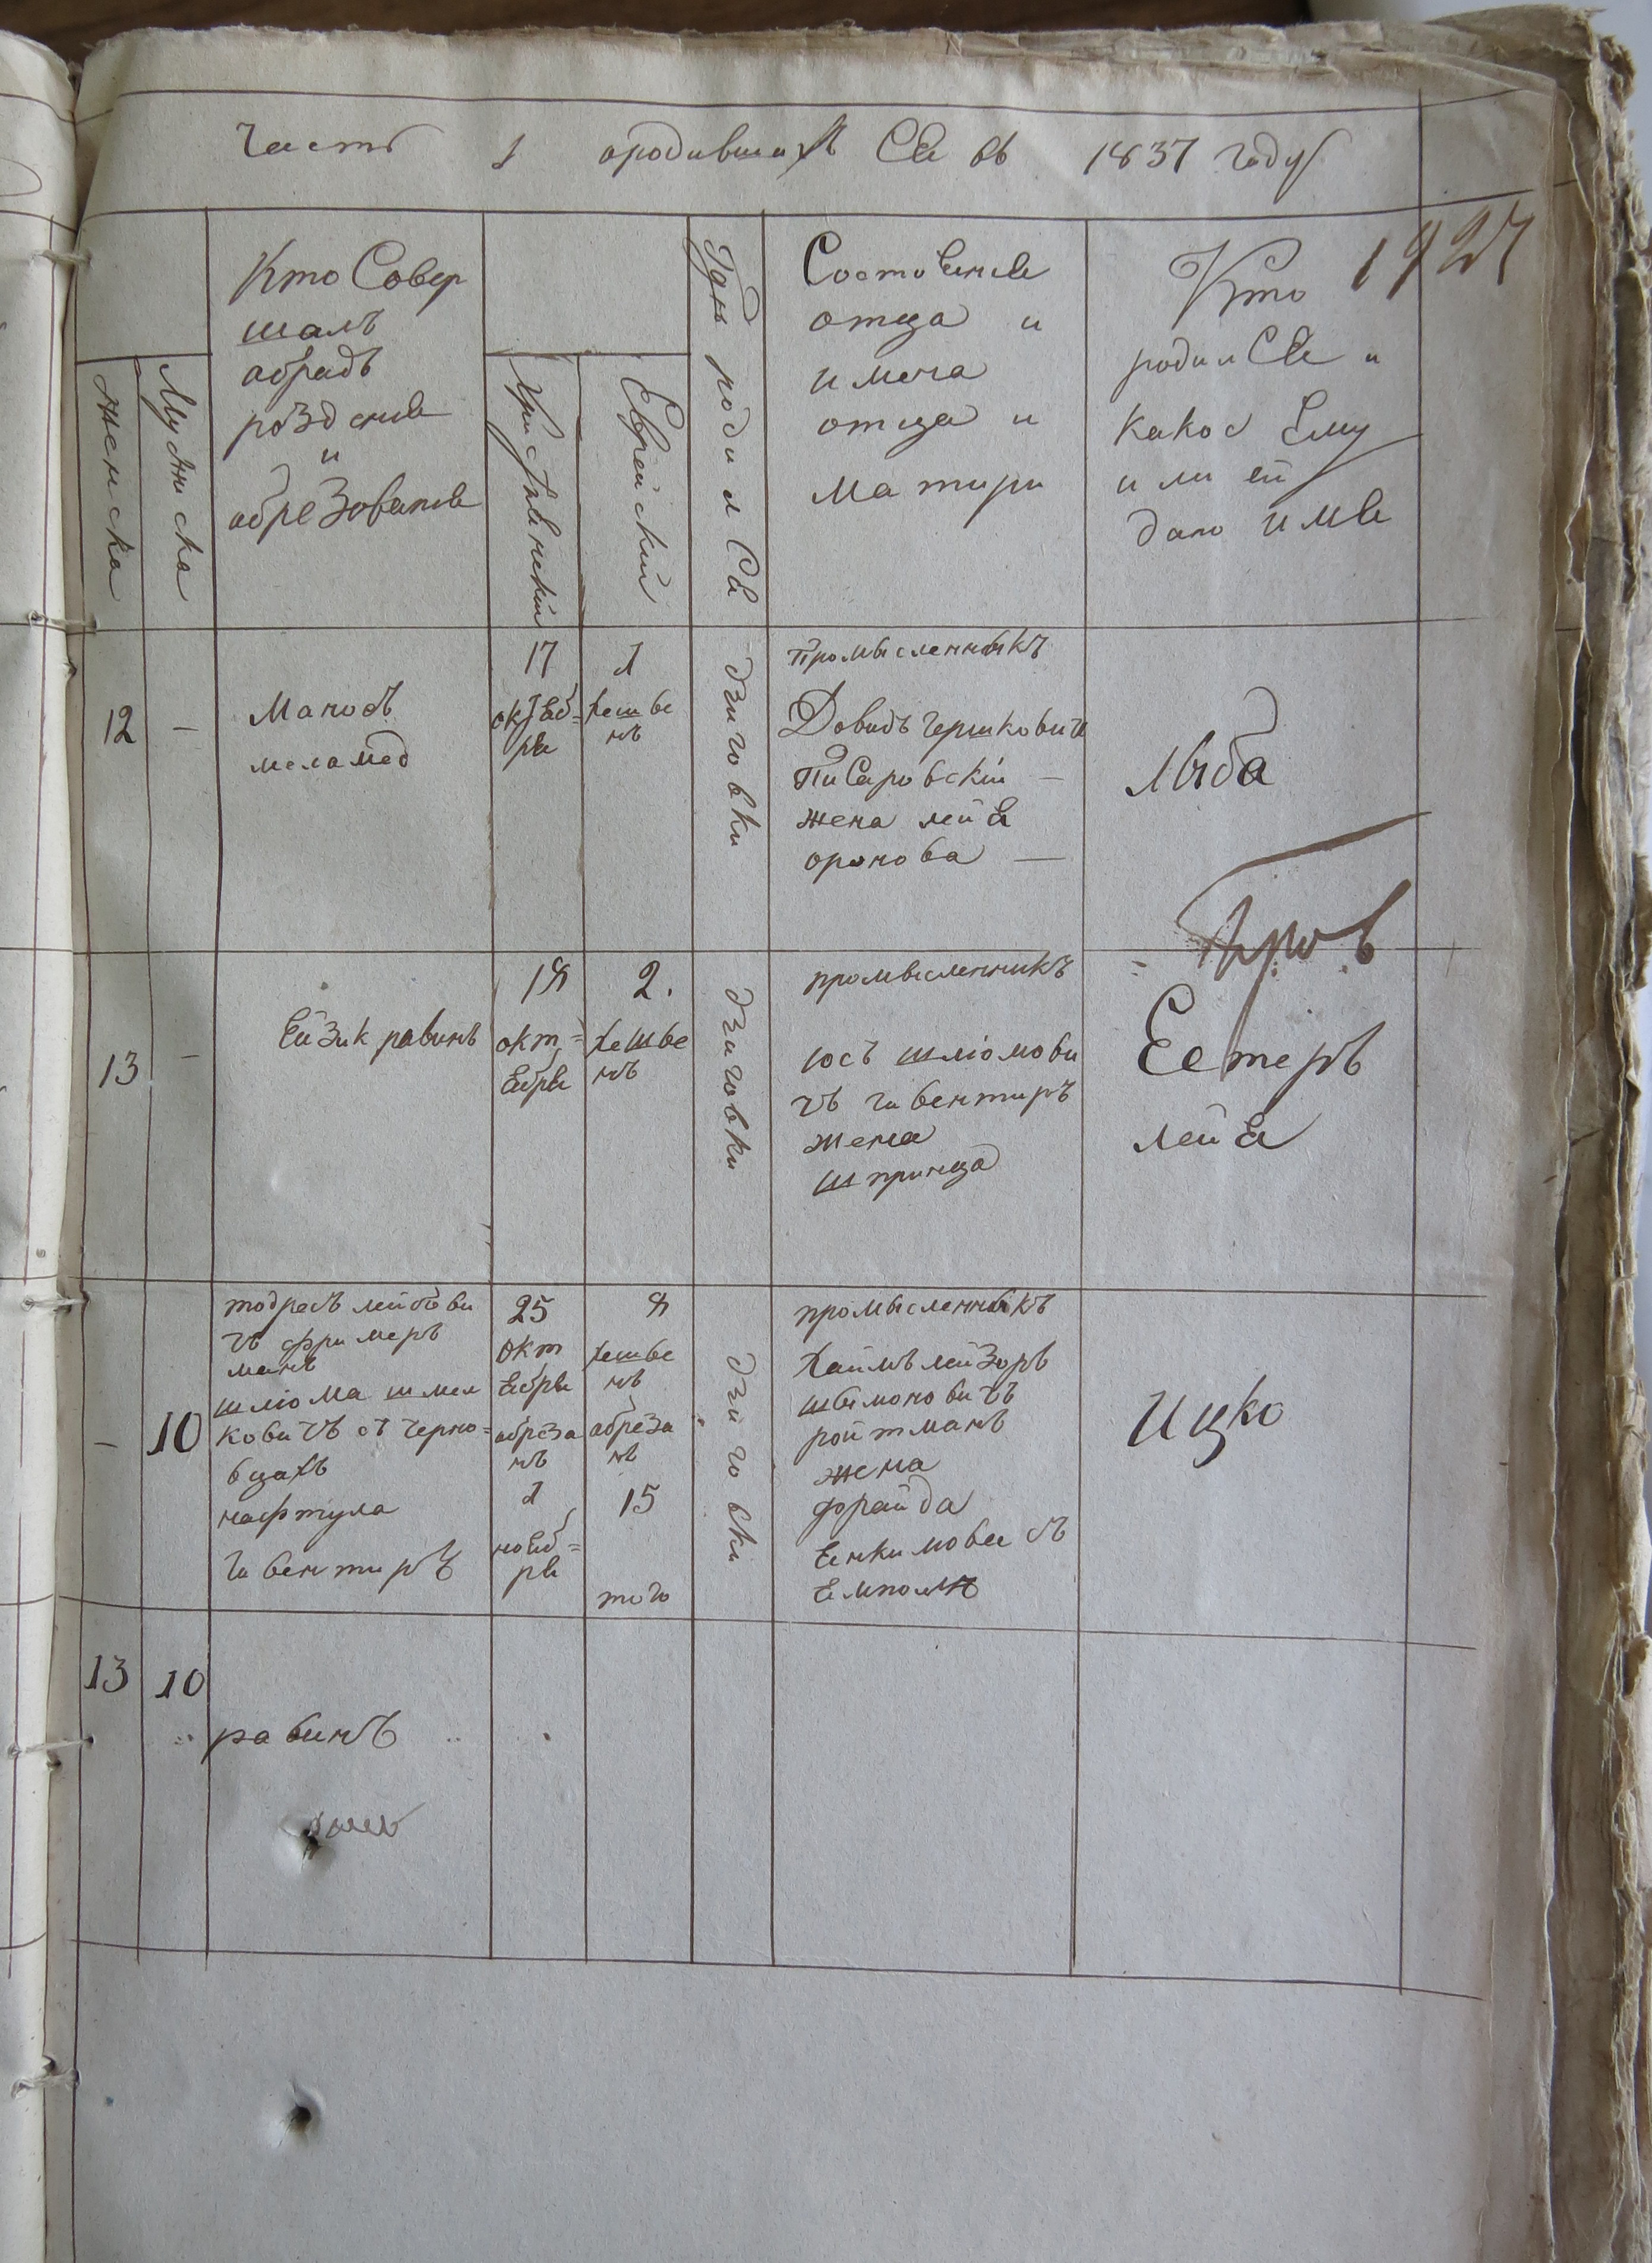 Часть 1 ородившихъ Ся въ 1837 году
1927
Женска
Мужиска
Кто Совер
шалъ
абрадъ
роздение
и
абрезование
Христианский
Еврейский
Гдѣ родилСя
Состояние
отца и
имена
отца и
матири
Кто
родилСя и
какое Ему
или ей
дано имя
12
–
Маносъ
меламед
17
октяб=
ря
1
хешве
нъ
дзиговки
Промысленныкъ
Довидъ гершкович
Писаровский –
жена лейя
оронова –
Лыба
13
–
Ейзик равинъ
18
окт=
ябрь
2.
хешве
нъ
дзиговки
промысленникъ
юсъ шлюмови
чъ гивентиръ
жена
шпринца
Естеръ
лейя
–
10
тодресъ лейбови
чъ фримеръ
манъ
шлюма шмел
ковичъ от черно=
вцахъ
нафтула
гивентиръ
25
окт
ябры
абреза
нъ
1
нояб=
ря
8
хешве
нъ
абреза
нъ
15
того
дзиговки
промысленныкъ
Хаимъ лейзоръ
шымоновичъ
ройтманъ
жена
фрайда
Янкимовa съ
Ямполя
Ицко
13
10
равинъ